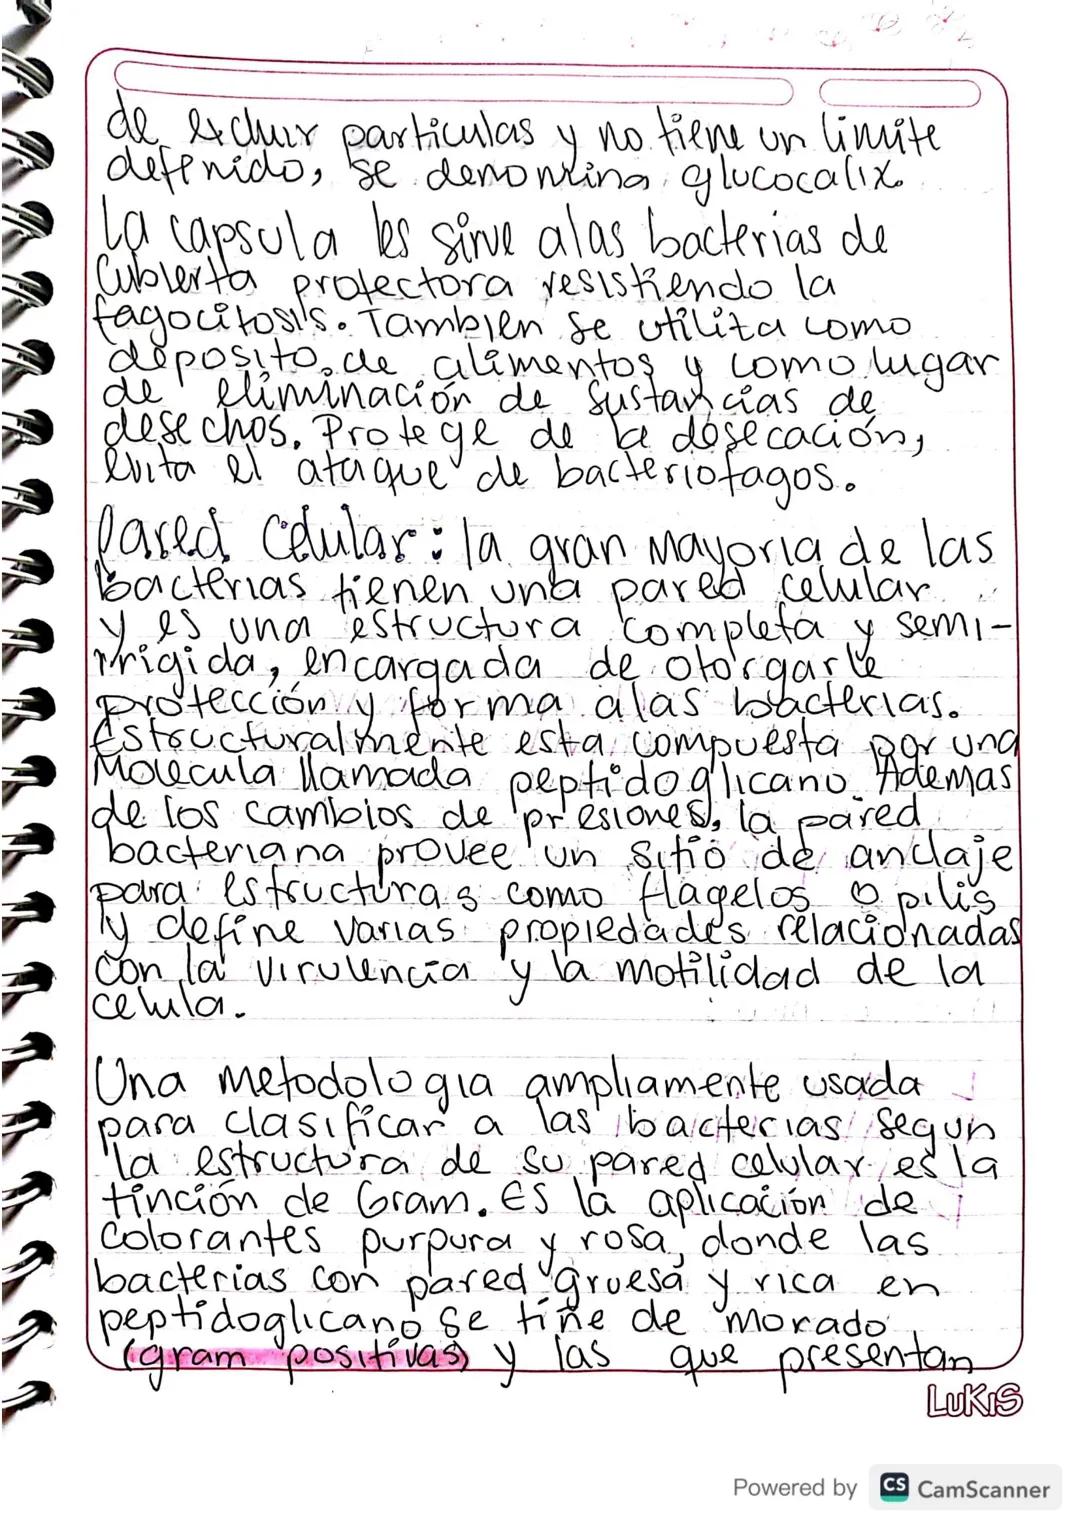 de excluir particulas y no tiene un limite
definido, se denomina glucocalix.
La capsula les sirve alas bacterias de
Cubierta protectora resistiendo la
fagocitosis. Tambien se utiliza como
deposito de alimentos y como lugar
de eliminación de sustancias de
desechos. Protege de la desecación,
evita el ataque de bacteriofagos.
Pared Celular: la gran Mayoria de las
bacterias tienen una pared celular
y es una estructura completa y semi-
rrigida, encargada de otorgarle
protección y forma alas bacterias.
Estructuralmente esta compuesta por una
Molecula llamada peptidoglicano. Ademas
de los cambios de presiones, la pared
bacteriana provee un sitio de anclaje
para estructuras como flagelos o pilis
y define varias propiedades relacionadas
con la virulencia y la motilidad de la
celula.
Una metodologia ampliamente usada
para clasificar a las bacterias segun
la estructura de su pared celular es la
tinción de Gram. Es la aplicación de
Colorantes purpura y rosa, donde las
bacterias con pared gruesa y rica en
peptidoglicano se tiñe de morado
(gram positivas) y las que presentan
LUKIS
Powered by CS CamScanner